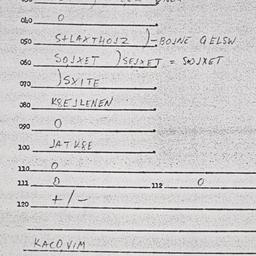 040 O
050 STLAXTHOJZ )-BOJNE GELSW
060 SOJXET )SEJXET = SOJXET
070 )SXITE
080 KGEJLENEN
090 O
100 JATKGE
110 O
111 O 112 O
120 +/-
KACOVIM